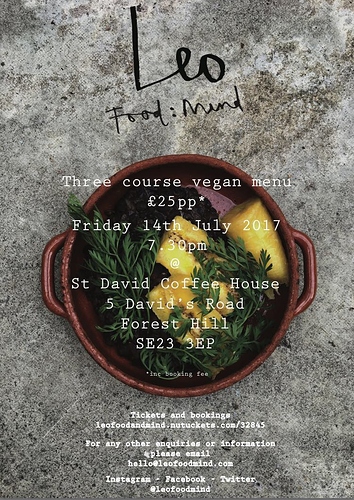 Leo
Food : Mind
Three course vegan menu
£25pp*
Friday 14th July 2017
7.30pm
@
St David Coffee House
5 David's Road
Forest Hill
SE23 3EP
*inc booking fee
Tickets and bookings
leofoodandmind.nutickets.com/32845
For any other enquiries or information
please email
hello@leofoodmind.com
Instagram - Facebook - Twitter
@leofoodmind